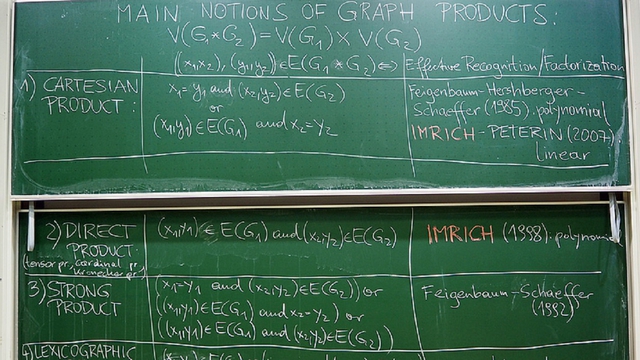 MAIN NOTIONS OF GRAPH PRODUCTS:
V(G₁*G₂) = V(G₁) × V(G₂)
((x₁,x₂), (y₁,y₂)) ∈ E(G₁ * G₂) ⇔ Effective Recognition/Factorization
1) CARTESIAN PRODUCT:
x₁=y₁ and (x₂,y₂) ∈ E(G₂)
or
(x₁,y₁) ∈ E(G₁) and x₂=y₂
Feigenbaum-Hershberger-
Schaeffer (1985) polynomial
IMRICH - PETERIN (2007)
linear
2) DIRECT
PRODUCT
(tensor pr., cardinal pr.
Kronecker pr.)
(x₁,y₁) ∈ E(G₁) and (x₂,y₂) ∈ E(G₂)
IMRICH (1998) polynomial
3) STRONG
PRODUCT
(x₁=y₁ and (x₂,y₂) ∈ E(G₂)) or
((x₁,y₁) ∈ E(G₁) and x₂=y₂) or
((x₁,y₁) ∈ E(G₁) and (x₂,y₂) ∈ E(G₂))
Feigenbaum-Schaeffer
(1992)
4) LEXICOGRAPHIC